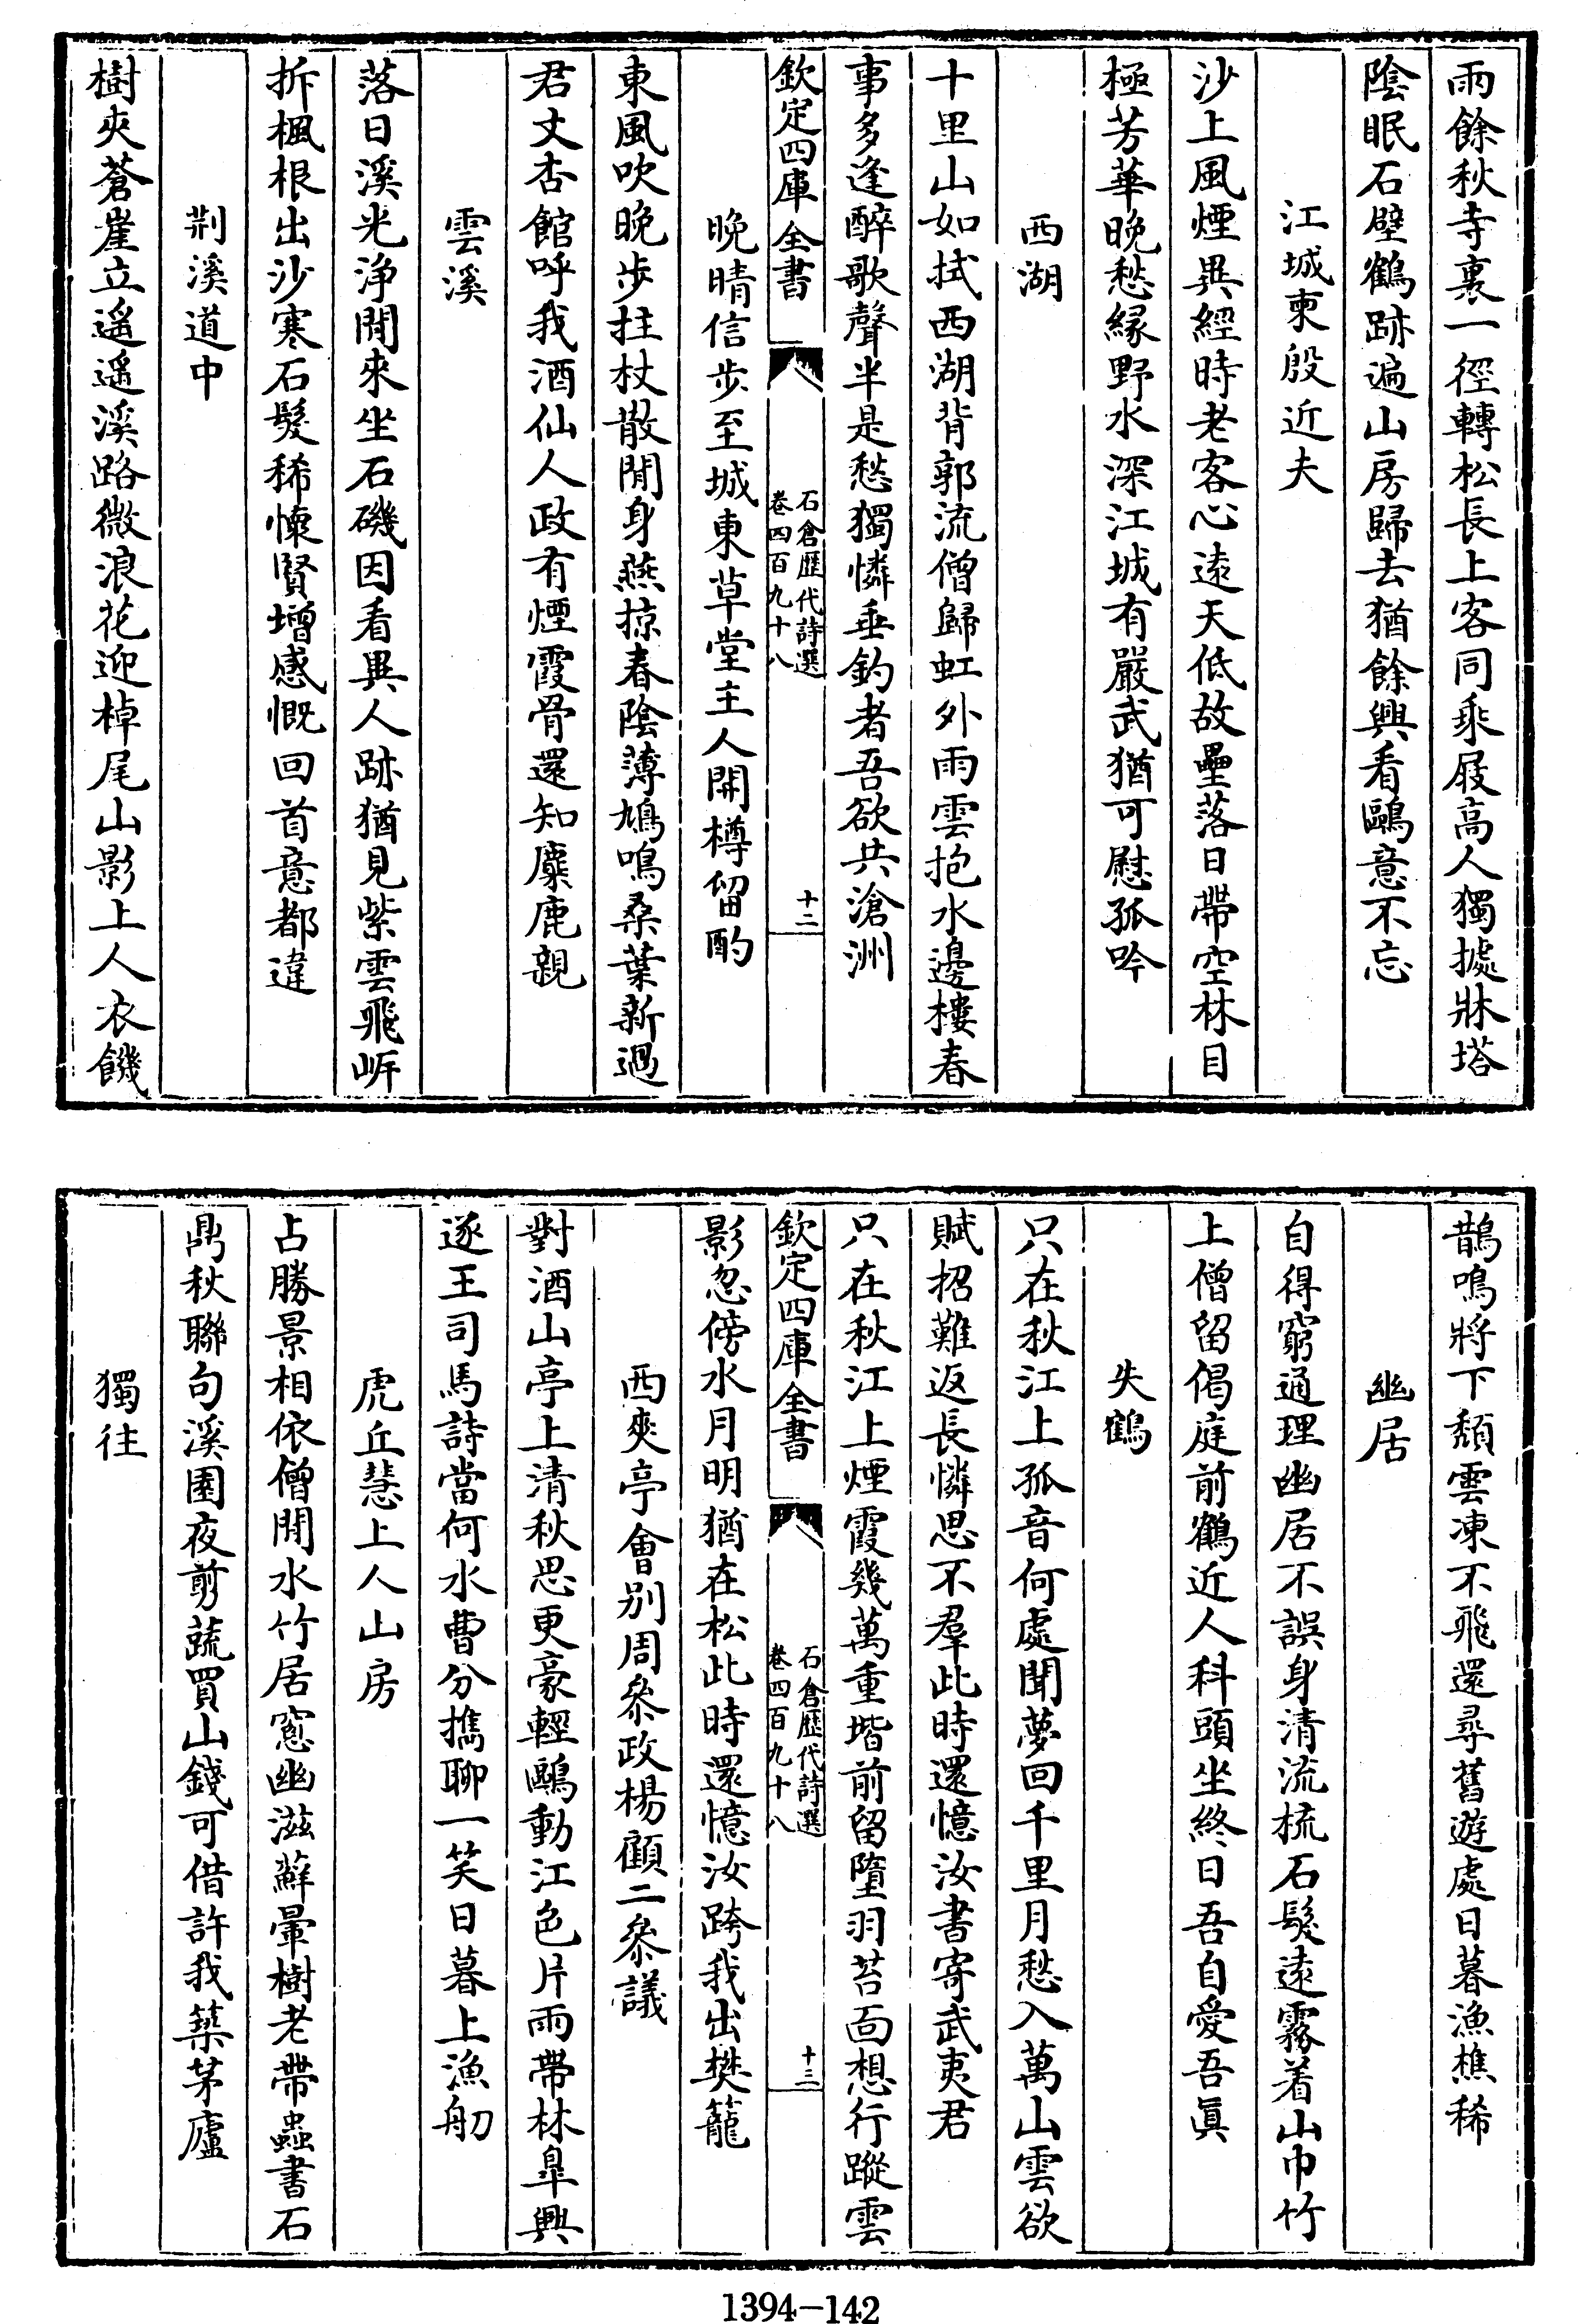 雨餘秋寺裏一徑轉松長上客同乘屐高人獨據牀塔
陰眠石壁鶴跡遍山房歸去猶餘興看鷗意不忘
江城柬殷近夫
沙上風煙異經時老客心遠天低故壘落日帶空林目
極芳華晚愁緣野水深江城有嚴武猶可慰孤吟
西湖
十里山如拭西湖背郭流僧歸虹外雨雲抱水邊樓春
事多逢醉歌聲半是愁獨憐垂釣者吾欲共滄洲
欽定四庫全書
石倉歷代詩選
卷四百九十八
十二
晚晴信步至城東草堂主人開樽留酌
東風吹晚步拄杖散閒身燕掠春陰薄鳩鳴桑葉新過
君丈杏館呼我酒仙人政有煙霞骨還知麋鹿親
雲溪
落日溪光浄閒來坐石磯因看異人跡猶見紫雲飛岍
拆楓根出沙寒石髮稀懷賢增感慨回首意都違
荆溪道中
樹夾蒼崖立遥遥溪路微浪花迎棹尾山影上人衣饑
鵲鳴將下頽雲凍不飛還尋舊遊處日暮漁樵稀
幽居
自得窮通理幽居不誤身清流梳石髮遠霧着山巾竹
上僧留偈庭前鶴近人科頭坐終日吾自愛吾眞
失鶴
只在秋江上孤音何處聞夢回千里月愁入萬山雲欲
賦招難返長憐思不羣此時還憶汝書寄武夷君
只在秋江上煙霞幾萬重堦前留墮羽苔面想行蹤雲
欽定四庫全書
石倉歷代詩選
卷四百九十八
十三
影忽傍水月明猶在松此時還憶汝跨我出樊籠
西爽亭會别周叅政楊顧二叅議
對酒山亭上清秋思更豪輕鷗動江色片雨帶林臯興
逐王司馬詩當何水曹分攜聊一笑日暮上漁舠
虎丘慧上人山房
占勝景相依僧開水竹居窓幽滋蘚暈樹老帶蟲書石
鼎秋聯句溪園夜剪蔬買山錢可借許我築茅廬
獨往
1394-142